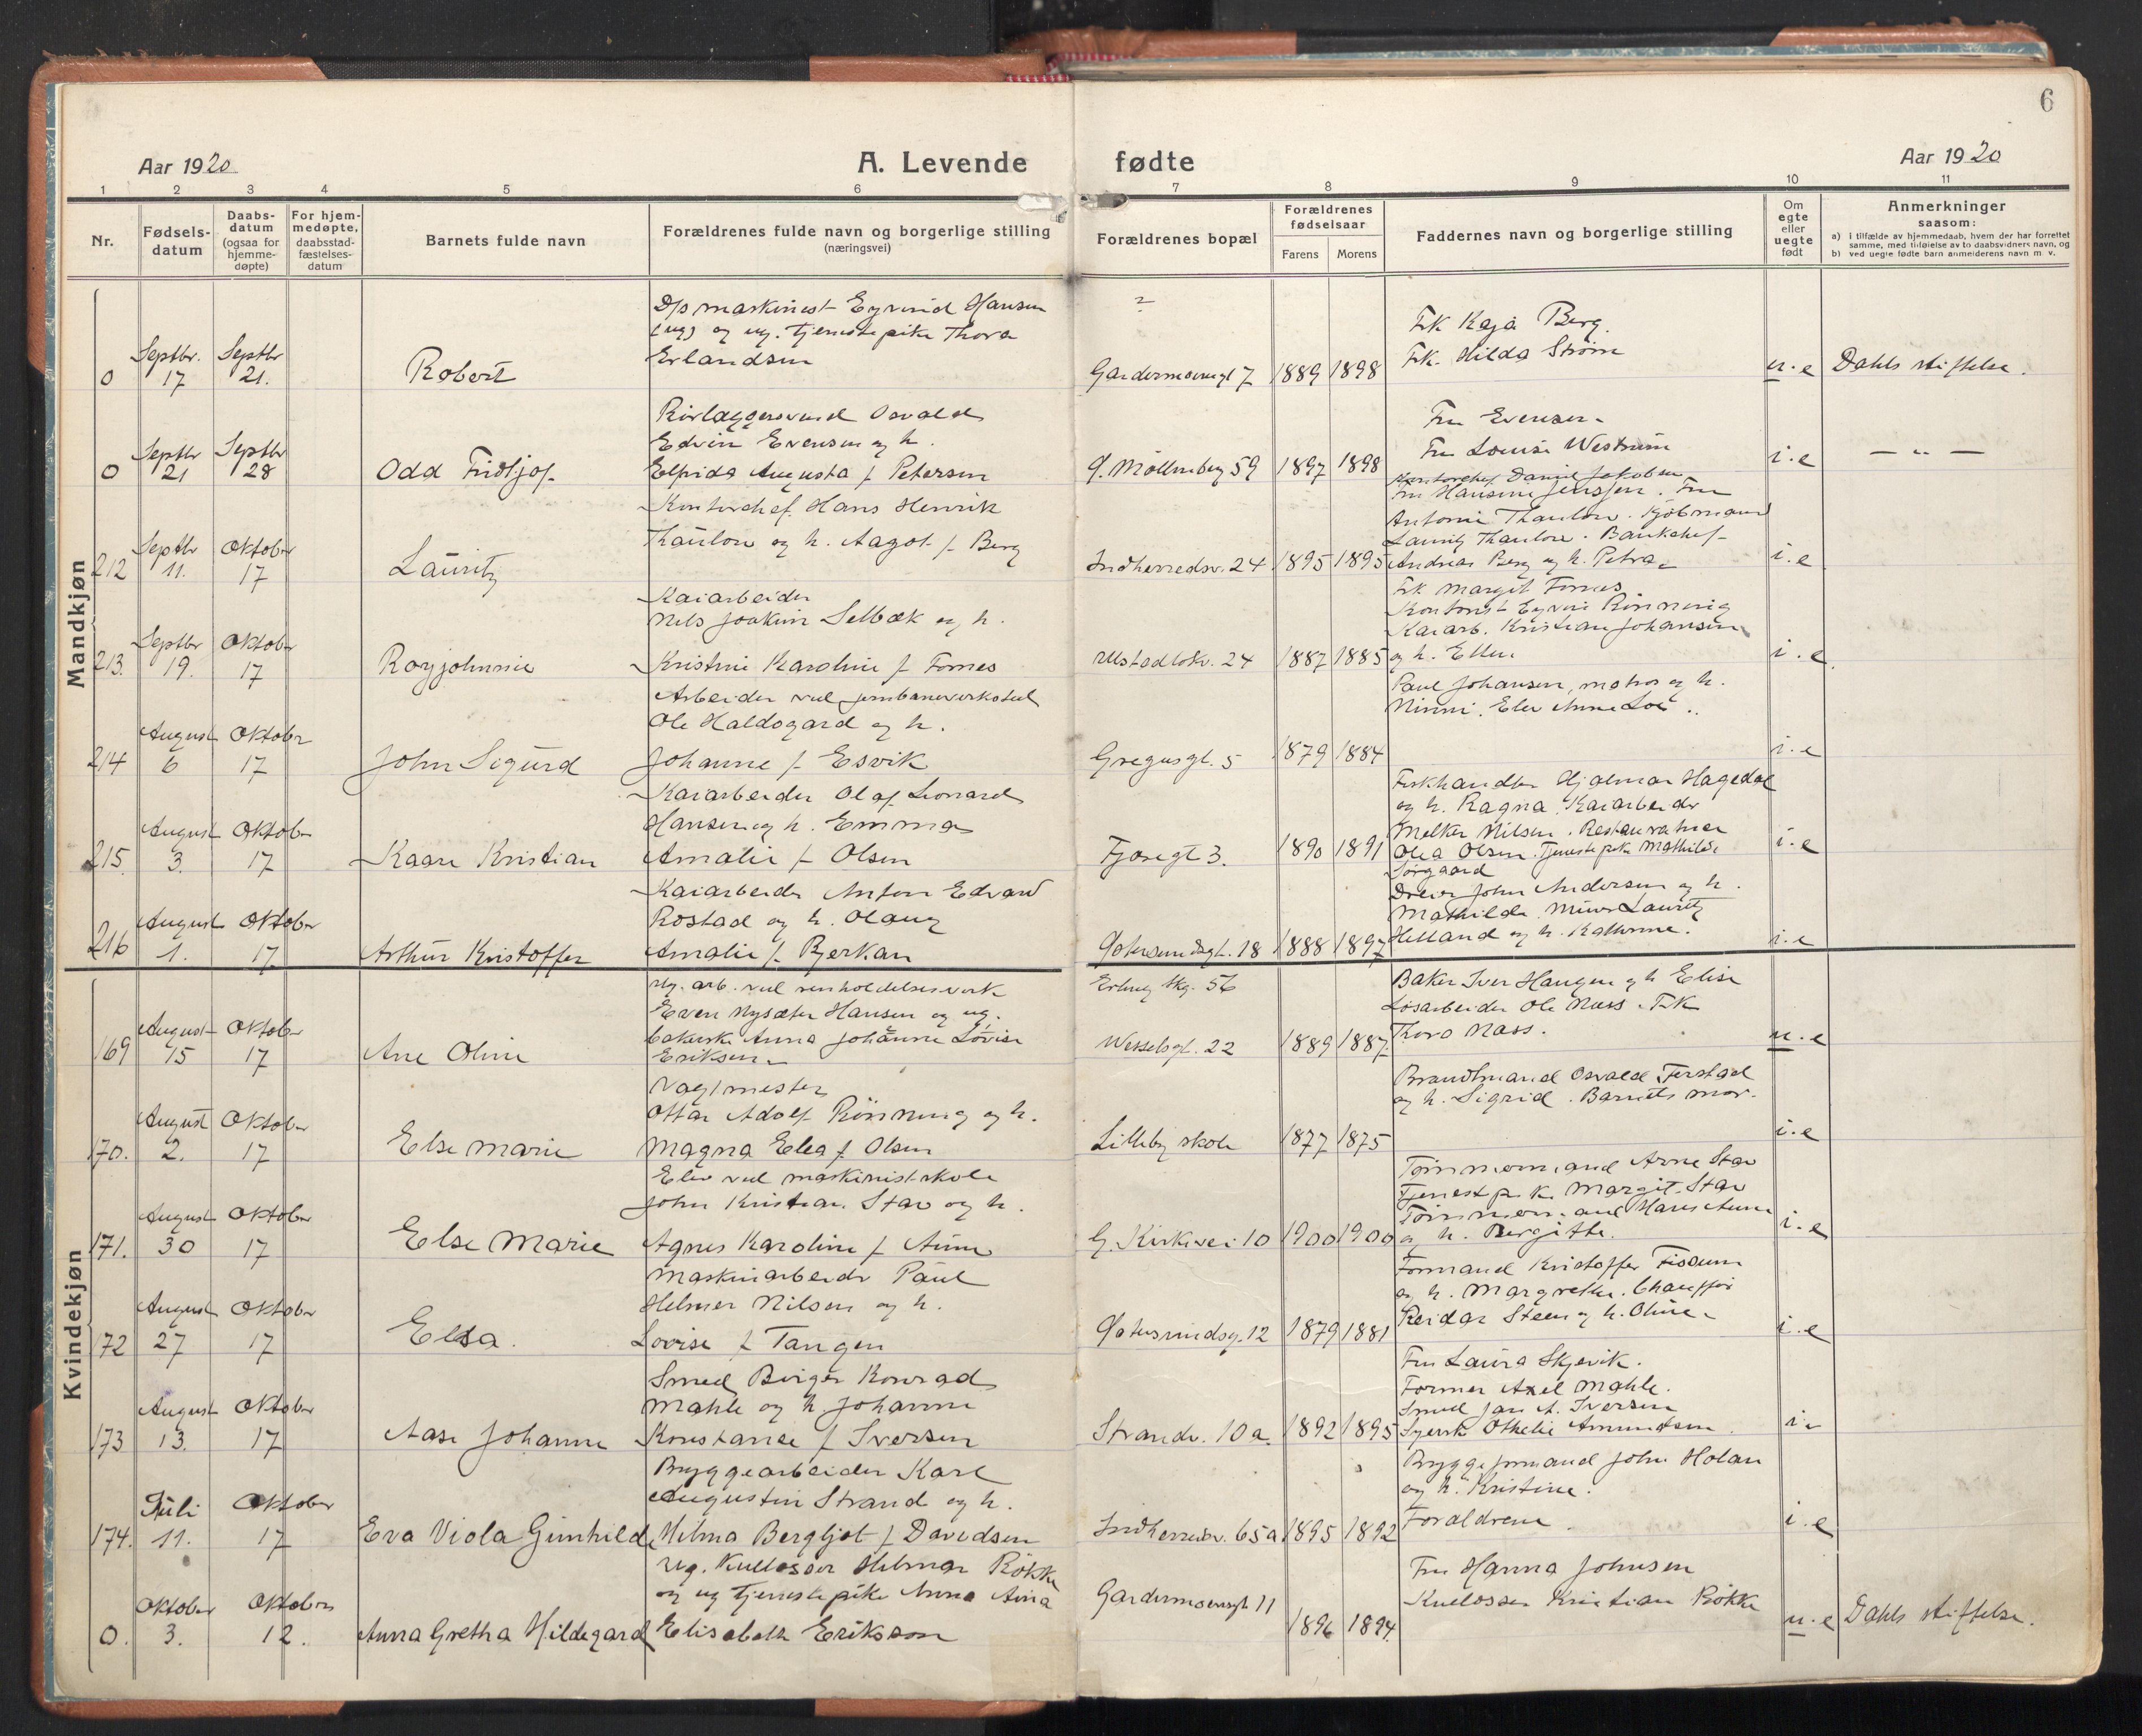 6
Aar 1920
A. Levende fødte
Aar 1920
1 2 3 4 5 6 7 8 9 10 11
Nr.
Fødsels-
datum
Daabs-
datum
(ogsaa for
hjemme-
døpte)
For hjem-
medøpte,
daabsstad-
fæstelses-
datum
Barnets fulde navn
Forældrenes fulde navn og borgerlige stilling
(næringsvei)
Forældrenes bopæl
Forældrenes
fødselsaar
Farens
Morens
Faddernes navn og borgerlige stilling
Om
egte
eller
uegte
født
Anmerkninger
saasom:
a) i tilfælde av hjemmedaab, hvem der har forrettet
samme, med tilføielse av to daabsvidners navn, og
b) ved uegte fødte barn anmelderens navn m. v.
Mandkjøn
0
Septbr.
17
Septbr
21.
Robert
D/s maskinist Eyvind Hansen
(ug) og ug. tjenestepike Thora
Erlandsen
Gardermoensgt 7
1889
1898
Frk Kaja Berg.
Frk. Hilda Strøm
u.e
Dahls stiftelse.
0
Septbr
21
Septbr
28
Odd Fridtjof
Rørlæggersvend Osvald
Edvin Evensen og h.
Elfrida Augusta f Petersen
Møllenberg 59
1897
1898
Fru Evensen
Fru Louise Westrum
i.e
— " —
212
Septbr
11.
Oktober
17
Lauritz
Kontorchef Hans Henrik
Thaulow og h. Aagot f. Berg
Indherredsv. 24
1895
1895
Kontorchef Daniel Jakobsen
Fru Hansine Jenssen. Fru
Antonie Thaulow. Kjøbmand
Lauritz Thaulow. Bankchef
Andreas Berg og h. Petra
i.e
213.
Septbr
19.
Oktober
17
Roy Johnnie
Kaiarbeider
Nils Joakim Selbæk og h.
Kristine Karoline f Fornes
24
1887
1885
Frk Margit Fornes
Kontorist Eyvin Rönning
Kaiarb. Kristian Johansen
og h. Ellen
i.e.
214
August
6
Oktober
17
John Sigurd
Arbeider ved jernbaneverksted
Ole Haldsgard og h.
Johanne f. Esvik
Gregusgt. 5
1879
1884
Paul Johansen, matros og h.
Ninni. Elev Anne Loe
i.e
215.
August
3.
Oktober
17
Kaare Kristian
Kaiarbeider Olaf Leonard
Hansen og h. Emma
Amalie f. Olsen
Fjæregt 3.
1890
1891
Fiskhandler Hjalmar Hagedal
og h. Ragna. Kaiarbeider
Melker Nilsen. Restauratrice
Olea Olsen. Tjenestepike Mathilde
Sørgaard
i.e
216
August
1.
Oktober
17
Arthur Kristoffer
Kaiarbeider Anton Edvard
Rostad og h. Olaug
Amalie f. Bjerkan
18
1888
1897
Dreier John Andersen og h.
Mathilde. Minør Lauritz
Hetland og h. Kathrine.
i.e
Kvindekjøn
169
August
15
Oktober
17
Ane Oline
Ug. arb. ved renholdelsesverk
Even Nysæter Hansen og ug.
Anna Johanne Lovise
Eriksen
56
Wesselsgt. 22
1889
1887.
Baker Iver Haugen og h Elise
Løsarbeider Ole Næss. Frk
Thora Næss.
u.e
170.
August
2.
Oktober
17
Else Marie
Vagtmester
Ottar Adolf Rönning og h.
Magna Elea f. Olsen
Lilleby skole
1877
1875
Brandmand Osvald
og h. Sigrid. Barnets mor.
i.e
171.
August
30
Oktober
17
Else Marie
Elev ved maskinistskole
John Kristian Stav og h.
Agnes Karoline f Aune
G. Kirkevei 10
1900
1900
Tømmermand Arne Stav
Tjenestpike Margit Stav
Tømmermand Hans Aune
og h. Bergitte.
i.e
172
August
27
Oktober
17
Elsa.
Maskinarbeider Paul
Helmer Nilsen og h.
Lovise f Tangen
12
1879
1881
Formand Kristoffer Fissum
og h. Margrethe. Chauffør
Reidar Steen og h. Oline
i.e
173
August
13.
Oktober
17
Aase Johanne
Smed Birger Konrad
Mahle og h. Johanne
Konstanse f Iversen
Strandv. 10 a.
1892
1895
Fru Laura Skjevik.
Former Axel Mahle.
Smed Jan A. Iversen
Syersk Othelie Amundsen.
i.
174.
Juli
11.
Oktober
17
Eva Viola Gunhild
Bryggearbeider Karl
Augustin Strand og h.
Hilma Bergljot f Davidsen
Indherredsv. 65a
1895
1892
Bryggeformand John Holan
og h. Kristine.
Forældrene.
i.e
0.
Oktober
3.
Oktober
12.
Anna Gretha Hildegard
Ug. Kullosser Hilmar Rökke
og ug tjenestepike Anna Aina
Elisabeth Eriksson
Gardermoensgt 11
1896
1894.
Fru Hanna Johnsen
Kullosser Kristian Rökke
u.e
Dahls stiftelse.